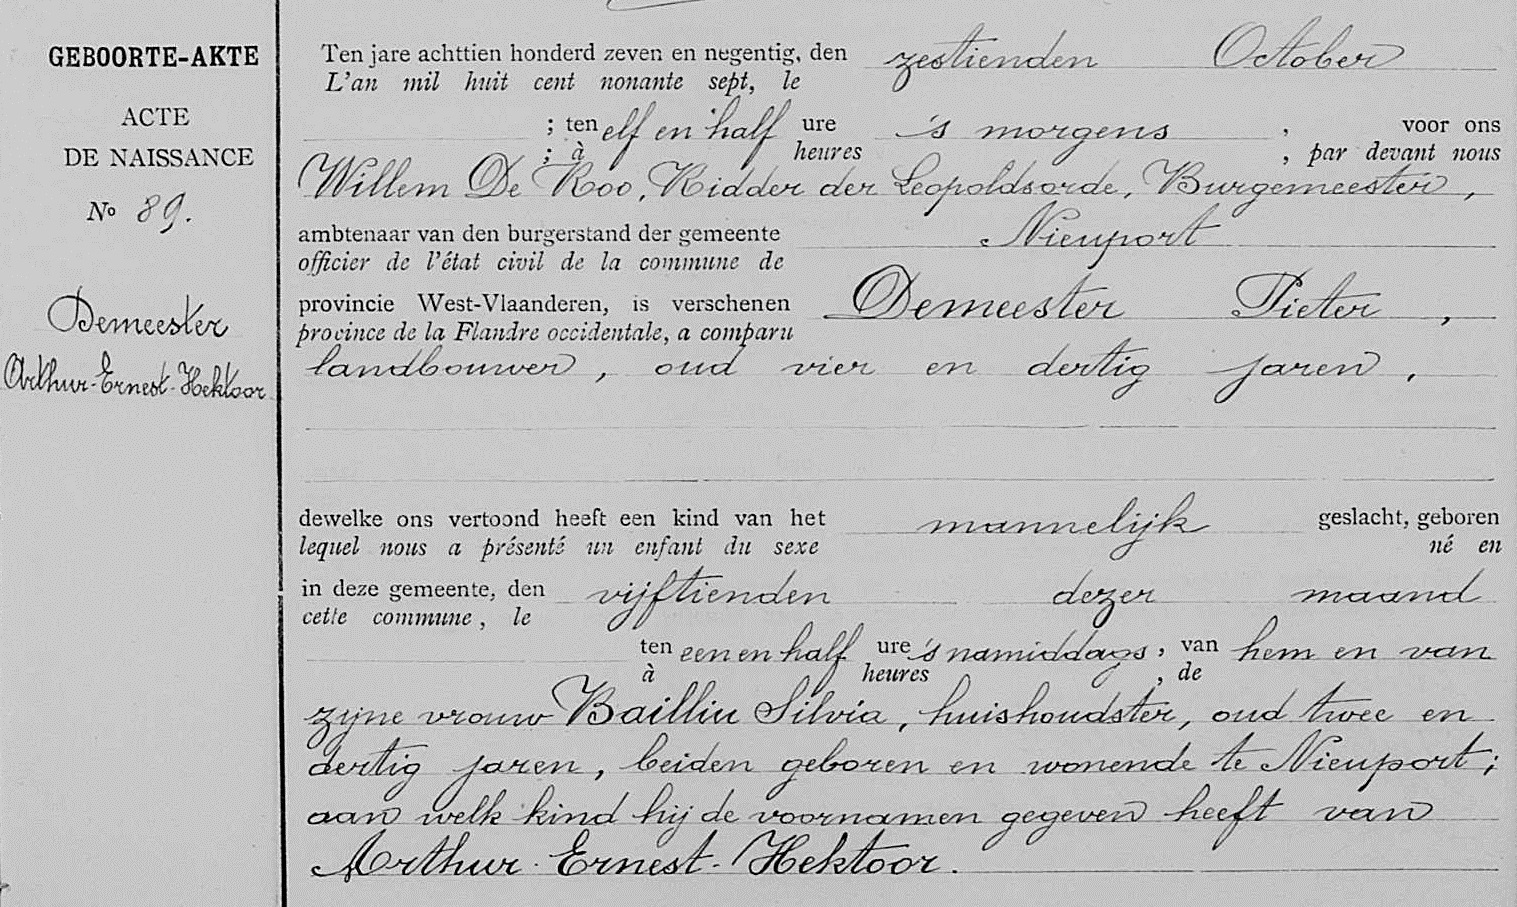 GEBOORTE-AKTE
ACTE
DE NAISSANCE
No 89.
Demeester
Arthur-Ernest-Hektoor
Ten jare achttien honderd zeven en negentig, den zestienden October
L'an mil huit cent nonante sept, le
; ten elf en half ure 's morgens , voor ons
; à heures , par devant nous
Willem De Roo, Ridder der Leopoldsorde, Burgemeester,
ambtenaar van den burgerstand der gemeente Nieuport
officier de l'état civil de la commune de
provincie West-Vlaanderen, is verschenen Demeester Pieter,
province de la Flandre occidentale, a comparu
landbouwer, oud vier en dertig jaren,
dewelke ons vertoond heeft een kind van het mannelijk geslacht, geboren
lequel nous a présenté un enfant du sexe né en
in deze gemeente, den vijftienden dezer maand
cette commune, le
ten een en half ure 's namiddags, van hem en van
à heures , de
zijne vrouw Bailliu Silvia, huishoudster, oud twee en
dertig jaren, beiden geboren en wonende te Nieuport;
aan welk kind hij de voornamen gegeven heeft van
Arthur-Ernest-Hektoor.